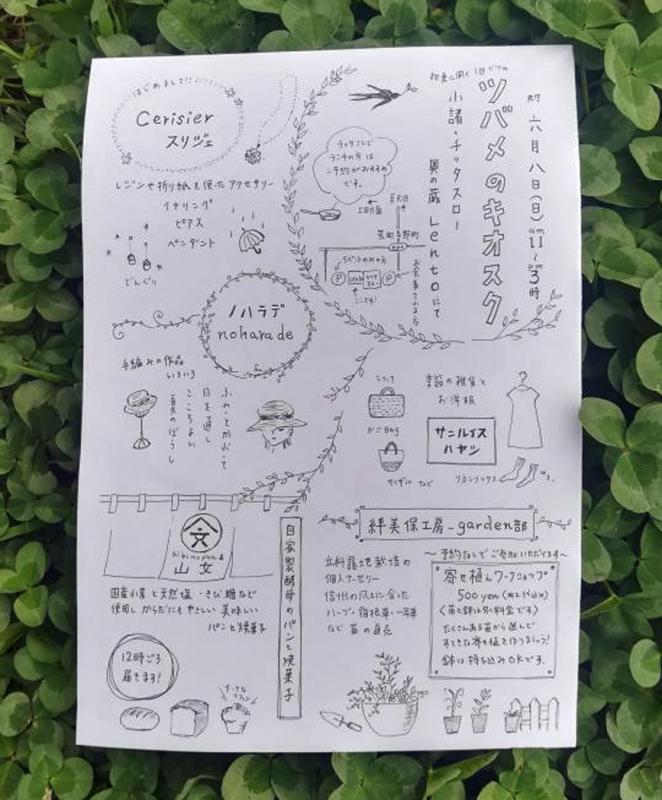 初夏に開く1日だけの
ツバメのキオスク
R7 六月八日(日) am11〜pm3時
小諸・チッタスロー
奥の蔵 Lentoにて
チッタスロで
ランチの方は
ご予約がおすすめ
です。
上田方面
佐久方面
荒町
与野町
P
P
ここです!
はじめまして!!
Cerisier
スリジェ
レジンや折り紙を使ったアクセサリー
イヤリング
ピアス
ペンダント
どんぐり
ノハラデ
noharade
手編みの作品
いろいろ
ふわっとかぶって
目を通し
ここちよい
夏のぼうし
季節の雑貨と
お洋服
かごBag
サンダル など
リネンソックス
サンルイス
ハヤシ
文
hibinopan&
山文
自家製酵母のパンと焼菓子
国産小麦と天然塩・きび糖など
使用し からだにもやさしい 美味しい
パンと焼菓子
12時ごろ
届きます!
絆美保工房-garden部
〜予約なしでご参加いただけます〜
立科露地栽培の
個人ナーセリー
信州の風土に合った
ハーブ・宿根草・一年草
など苗の直売
寄せ植えワークショップ
500yen(肥土代込み)
〈苗と鉢は別料金です〉
たくさんある苗から選んで
すてきな寄せ植え作りましょう!
鉢は持ち込みOKです。